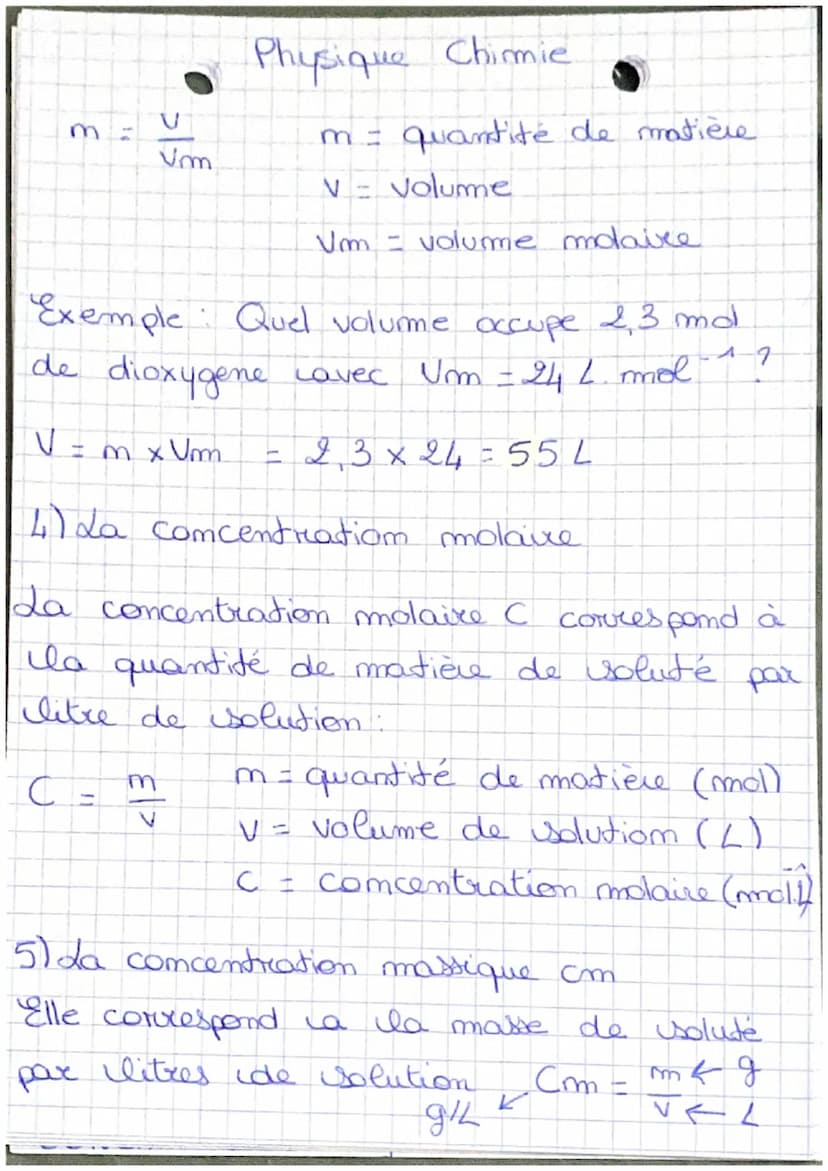 Physique Chimie
n = V/Vm n = quantité de matière
V = volume
Vm = volume molaire
Exemple : Quel volume occupe 2,3 mol
de dioxygene avec Vm = 24 L. mol⁻¹ ?
V = n x Vm = 2,3 x 24 = 55 L
4) La concentration molaire
La concentration molaire C correspond à
la quantité de matière de soluté par
litre de solution :
C = n/V n = quantité de matière (mol)
V = volume de solution (L)
C = concentration molaire (mol.L⁻¹)
5) La concentration massique Cm
Elle correspond a la masse de soluté
par litres de solution Cm = m/V ← g
g/L ↙ ← L